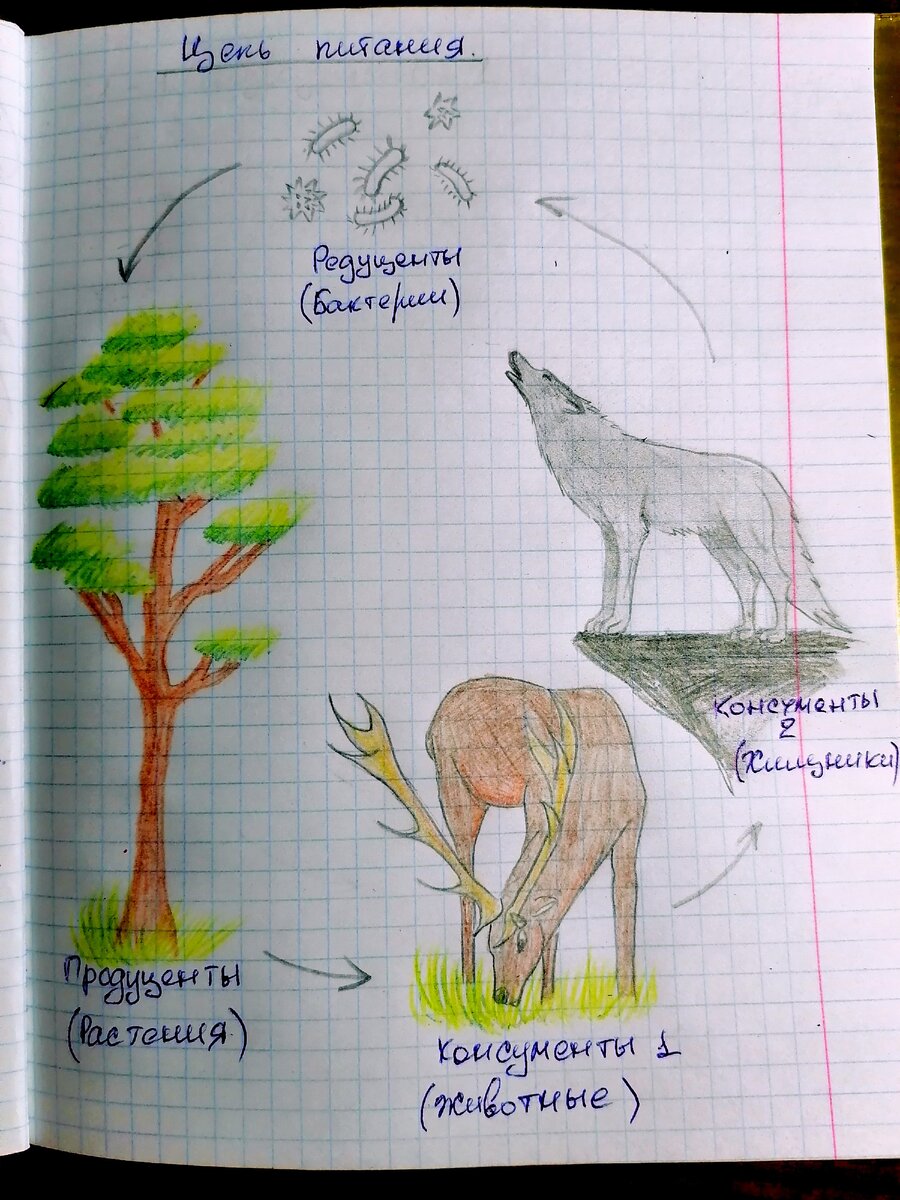 Цепь питания.
Редуценты
(Бактерии)
Консументы
2
(Хищники)
Продуценты
(Растения)
Консументы 1
(Животные)